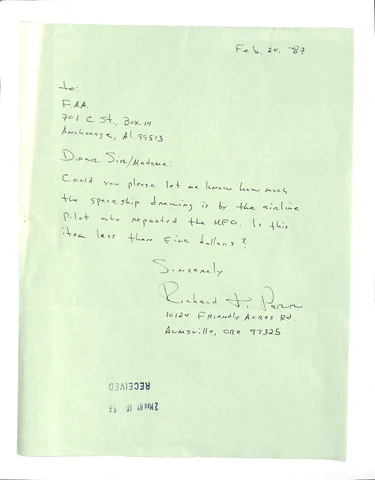 Feb. 24. '87
to:
F.A.A.
701 C St., Box 14
Anchorage, Al. 99513
Dear Sir/Madame:
Could you please let me know how much
the spaceship drawing is by the airline
pilot who reported the UFO. Is this
item less than five dollars?
Sincerely
Richard J.
16124 Friendly Acres Rd.
Aumsville, Ore 97325
RECEIVED
2 MAR 87 10 56